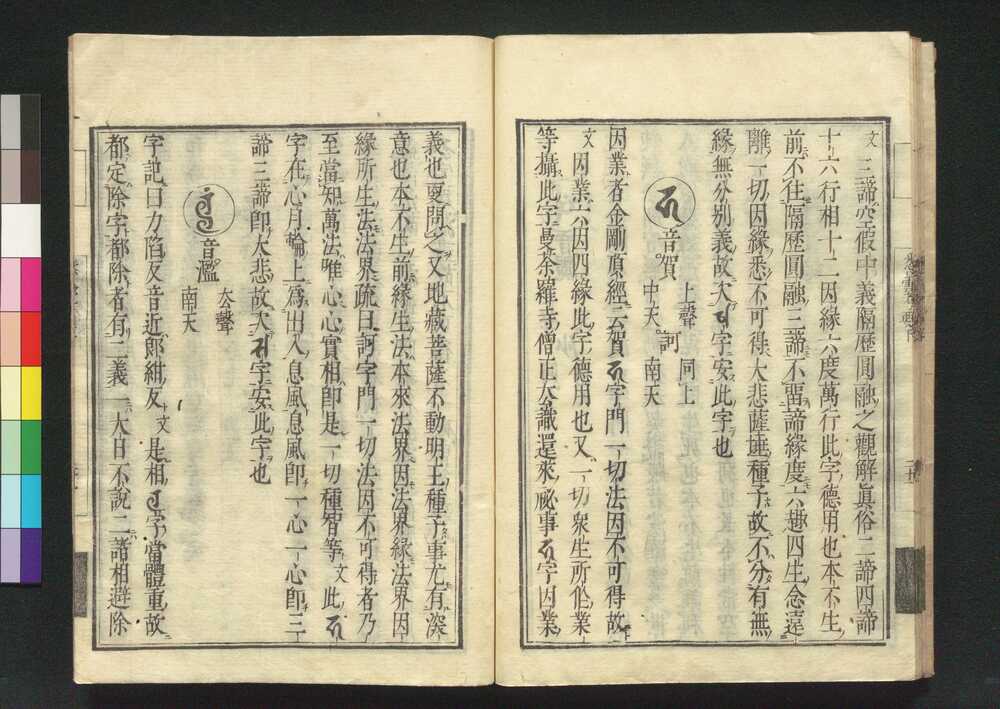 文 三諦空假中義隔歷圓融之觀解眞俗二諦四諦
十六行相十二因緣六度萬行此字德用也本不生
前不住隔歷圓融三諦不畱諦緣度六趣四生念遠
離一切因緣悉不可得大悲薩埵種子故不分有無
緣無分別義故大𑖮字安此字也
𑖮 音賀 上聲 中天 訶 同上 南天
因業者金剛頂經云賀𑖮字門一切法因不可得故
文 因業六因四緣此字德用也又一切衆生所作業
等攝此字曼荼羅寺僧正大識還來祕事𑖮字因業
義也更問之又地藏菩薩不動明王種子事尤有深
意也本不生前緣生法本來法界因法界緣法界因
緣所生法法界疏曰訶字門一切法因不可得者乃
至當知萬法唯心心實相卽是一切種智等 文 此𑖮
字在心月輪上爲出入息風息風卽一心一心卽三
諦三諦卽大悲故大𑖮字安此字也
音濫 去聲 南天
字記曰力陷反音近郞紺反 文 是相字當體重故
都定除字都除者有二義一大日不說二諸相避除